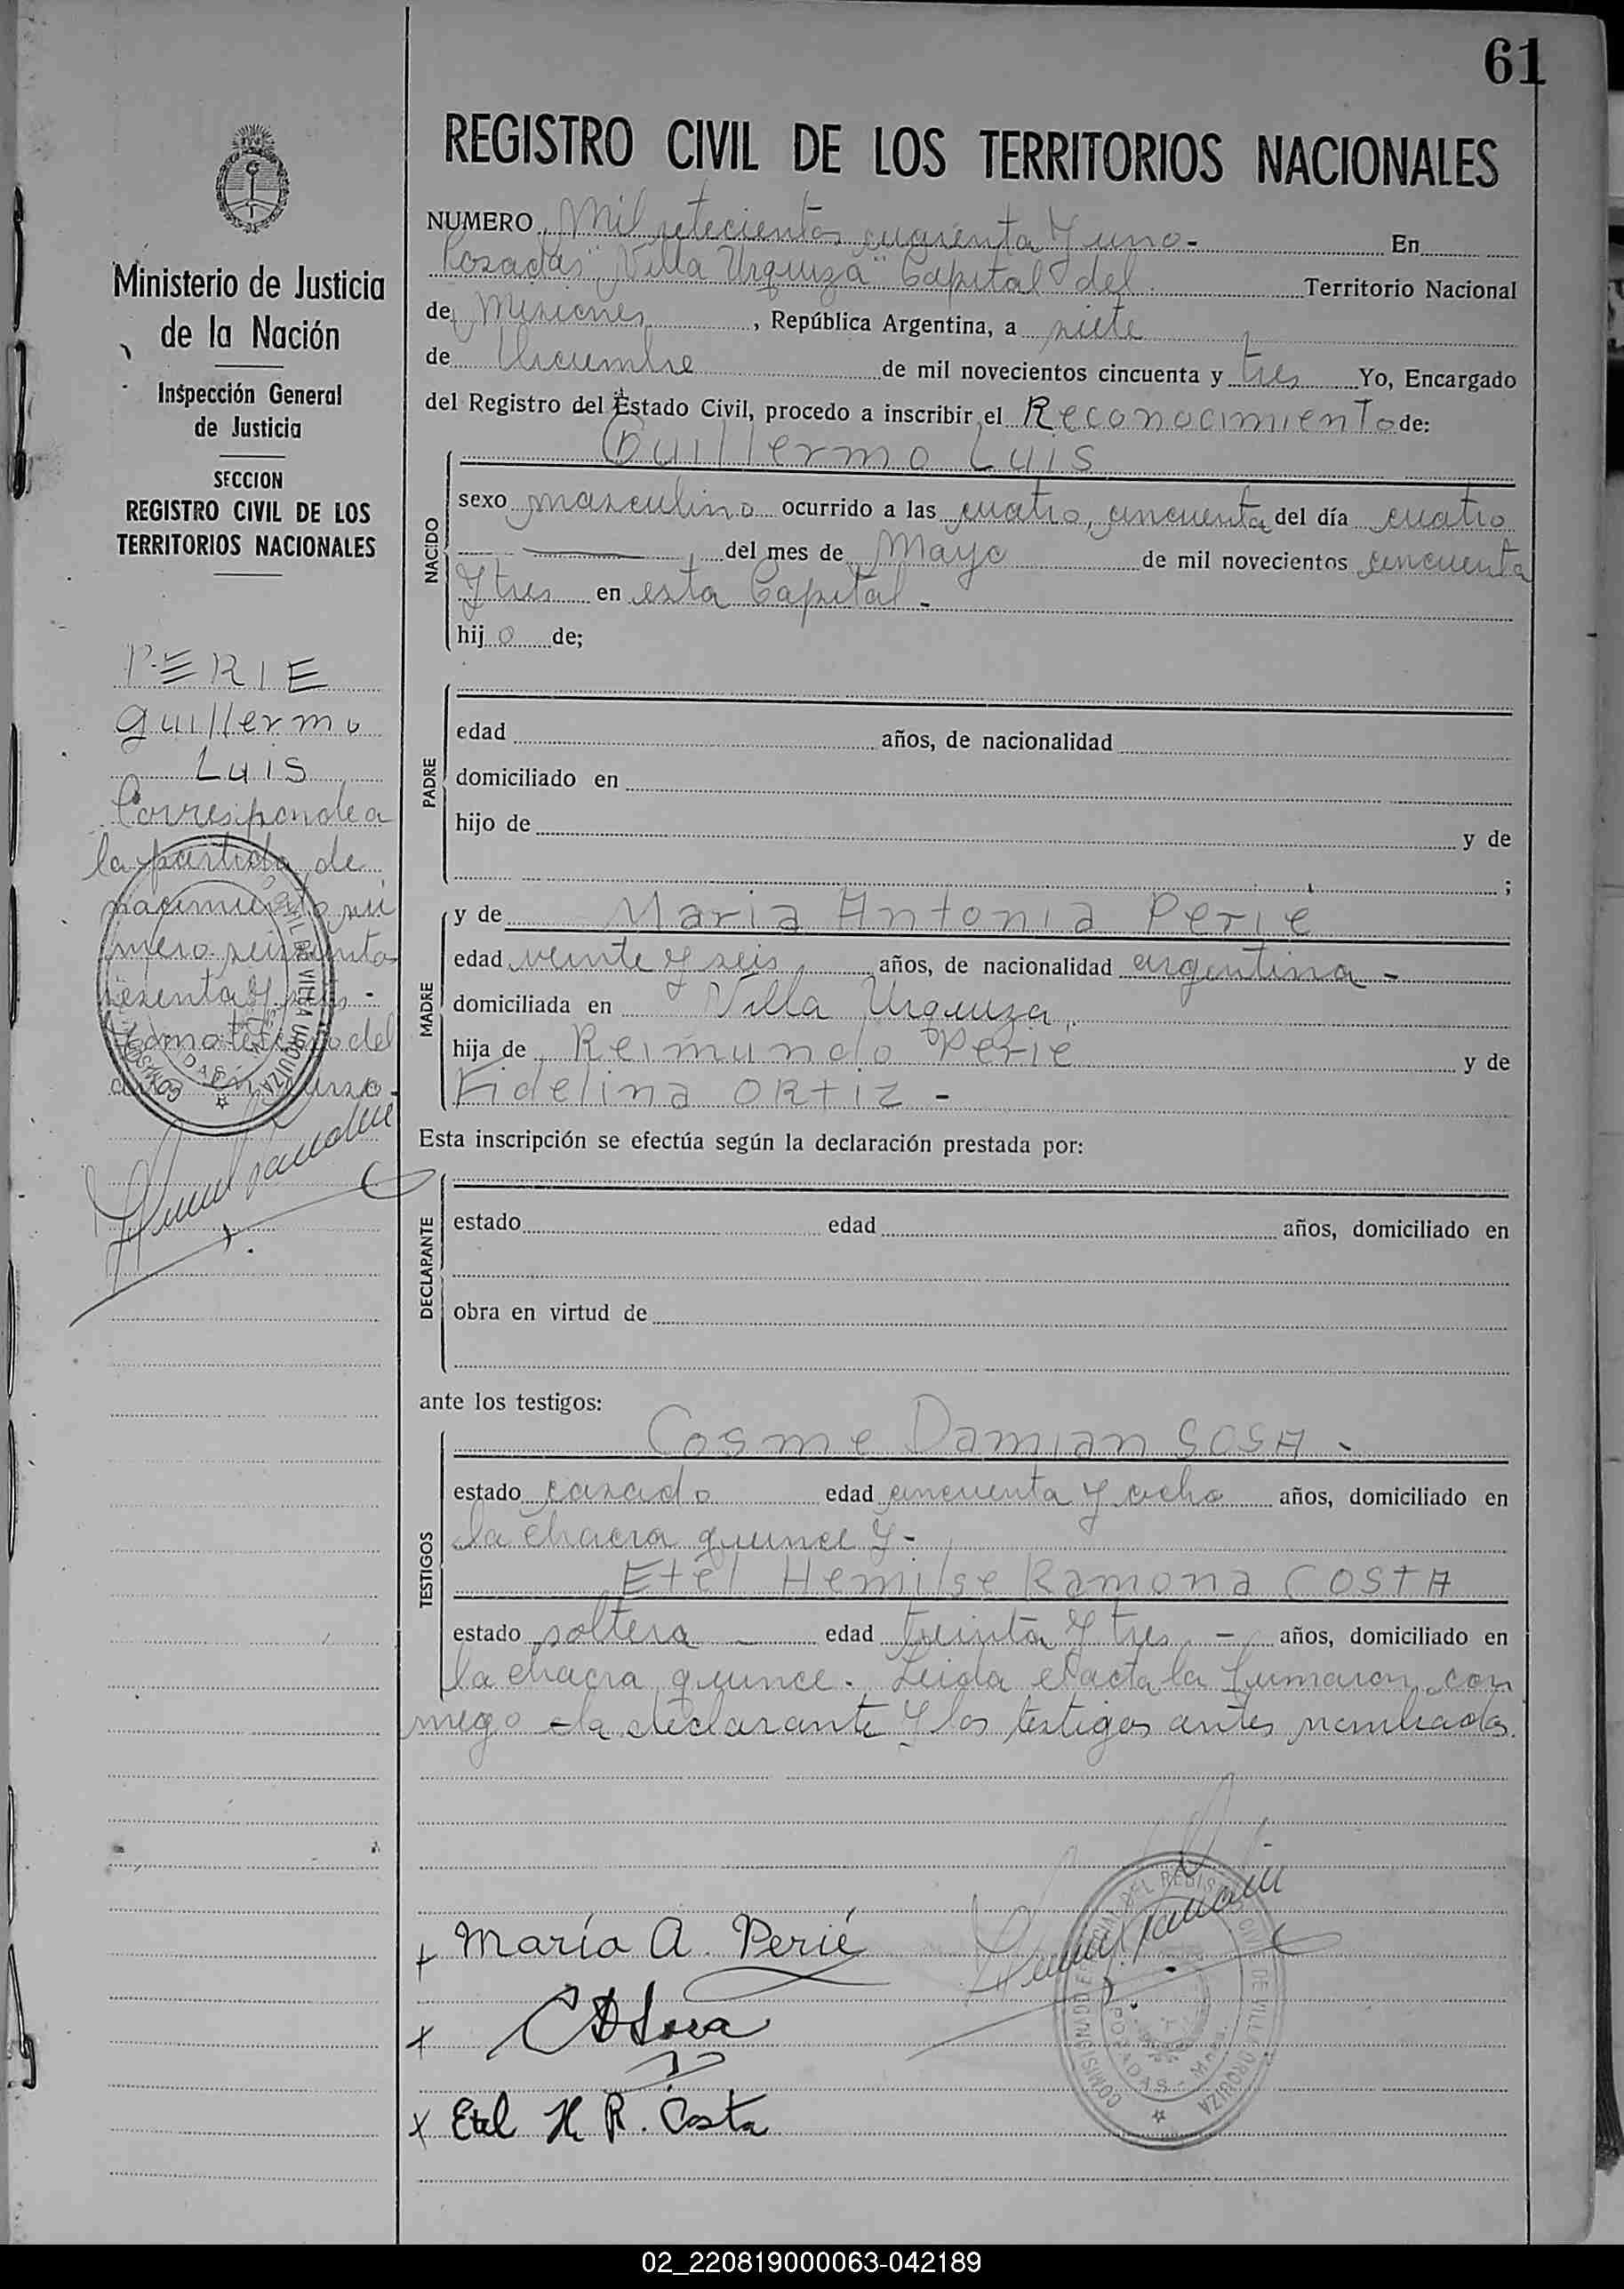 61
REGISTRO CIVIL DE LOS TERRITORIOS NACIONALES
Ministerio de Justicia
de la Nación
Inspección General
de Justicia
SECCION
REGISTRO CIVIL DE LOS
TERRITORIOS NACIONALES
PERIE
Guillermo
Luis
Corresponde a
la partida de
nacimiento nú
mero seiscientos
sesenta y seis -
tomo tercero del
año en curso.
NUMERO Mil setecientos cuarenta y uno - En
Posadas "Villa Urquiza" Capital del Territorio Nacional
de Misiones, República Argentina, a siete
de Diciembre de mil novecientos cincuenta y tres Yo, Encargado
del Registro del Estado Civil, procedo a inscribir el Reconocimiento de:
Guillermo Luis
NACIDO
sexo masculino ocurrido a las cuatro, cincuenta del día cuatro
del mes de Mayo de mil novecientos cincuenta
y tres en esta Capital -
hijo de;
PADRE
edad años, de nacionalidad
domiciliado en
hijo de y de
;
MADRE
y de Maria Antonia Perie
edad veinte y seis años, de nacionalidad argentina -
domiciliada en Villa Urquiza
hija de Reimundo Perie y de
Fidelina ORTIZ -
Esta inscripción se efectúa según la declaración prestada por:
DECLARANTE
estado edad años, domiciliado en
obra en virtud de
ante los testigos:
TESTIGOS
Cosme Damian SOSA -
estado casado edad cincuenta y ocho años, domiciliado en
la chacra quince y -
Etel Hemilse Ramona COSTA
estado soltera - edad treinta y tres - años, domiciliado en
la chacra quince. Leida el acta la firmaron con
migo la declarante y los testigos antes nombrados.
+ María A. Perié
x CDSosa
x Etel H. R. Costa
COMISIONADO ESPECIAL DEL REGISTRO CIVIL DE VILLA URQUIZA
POSADAS - Mnes.
02_220819000063-042189